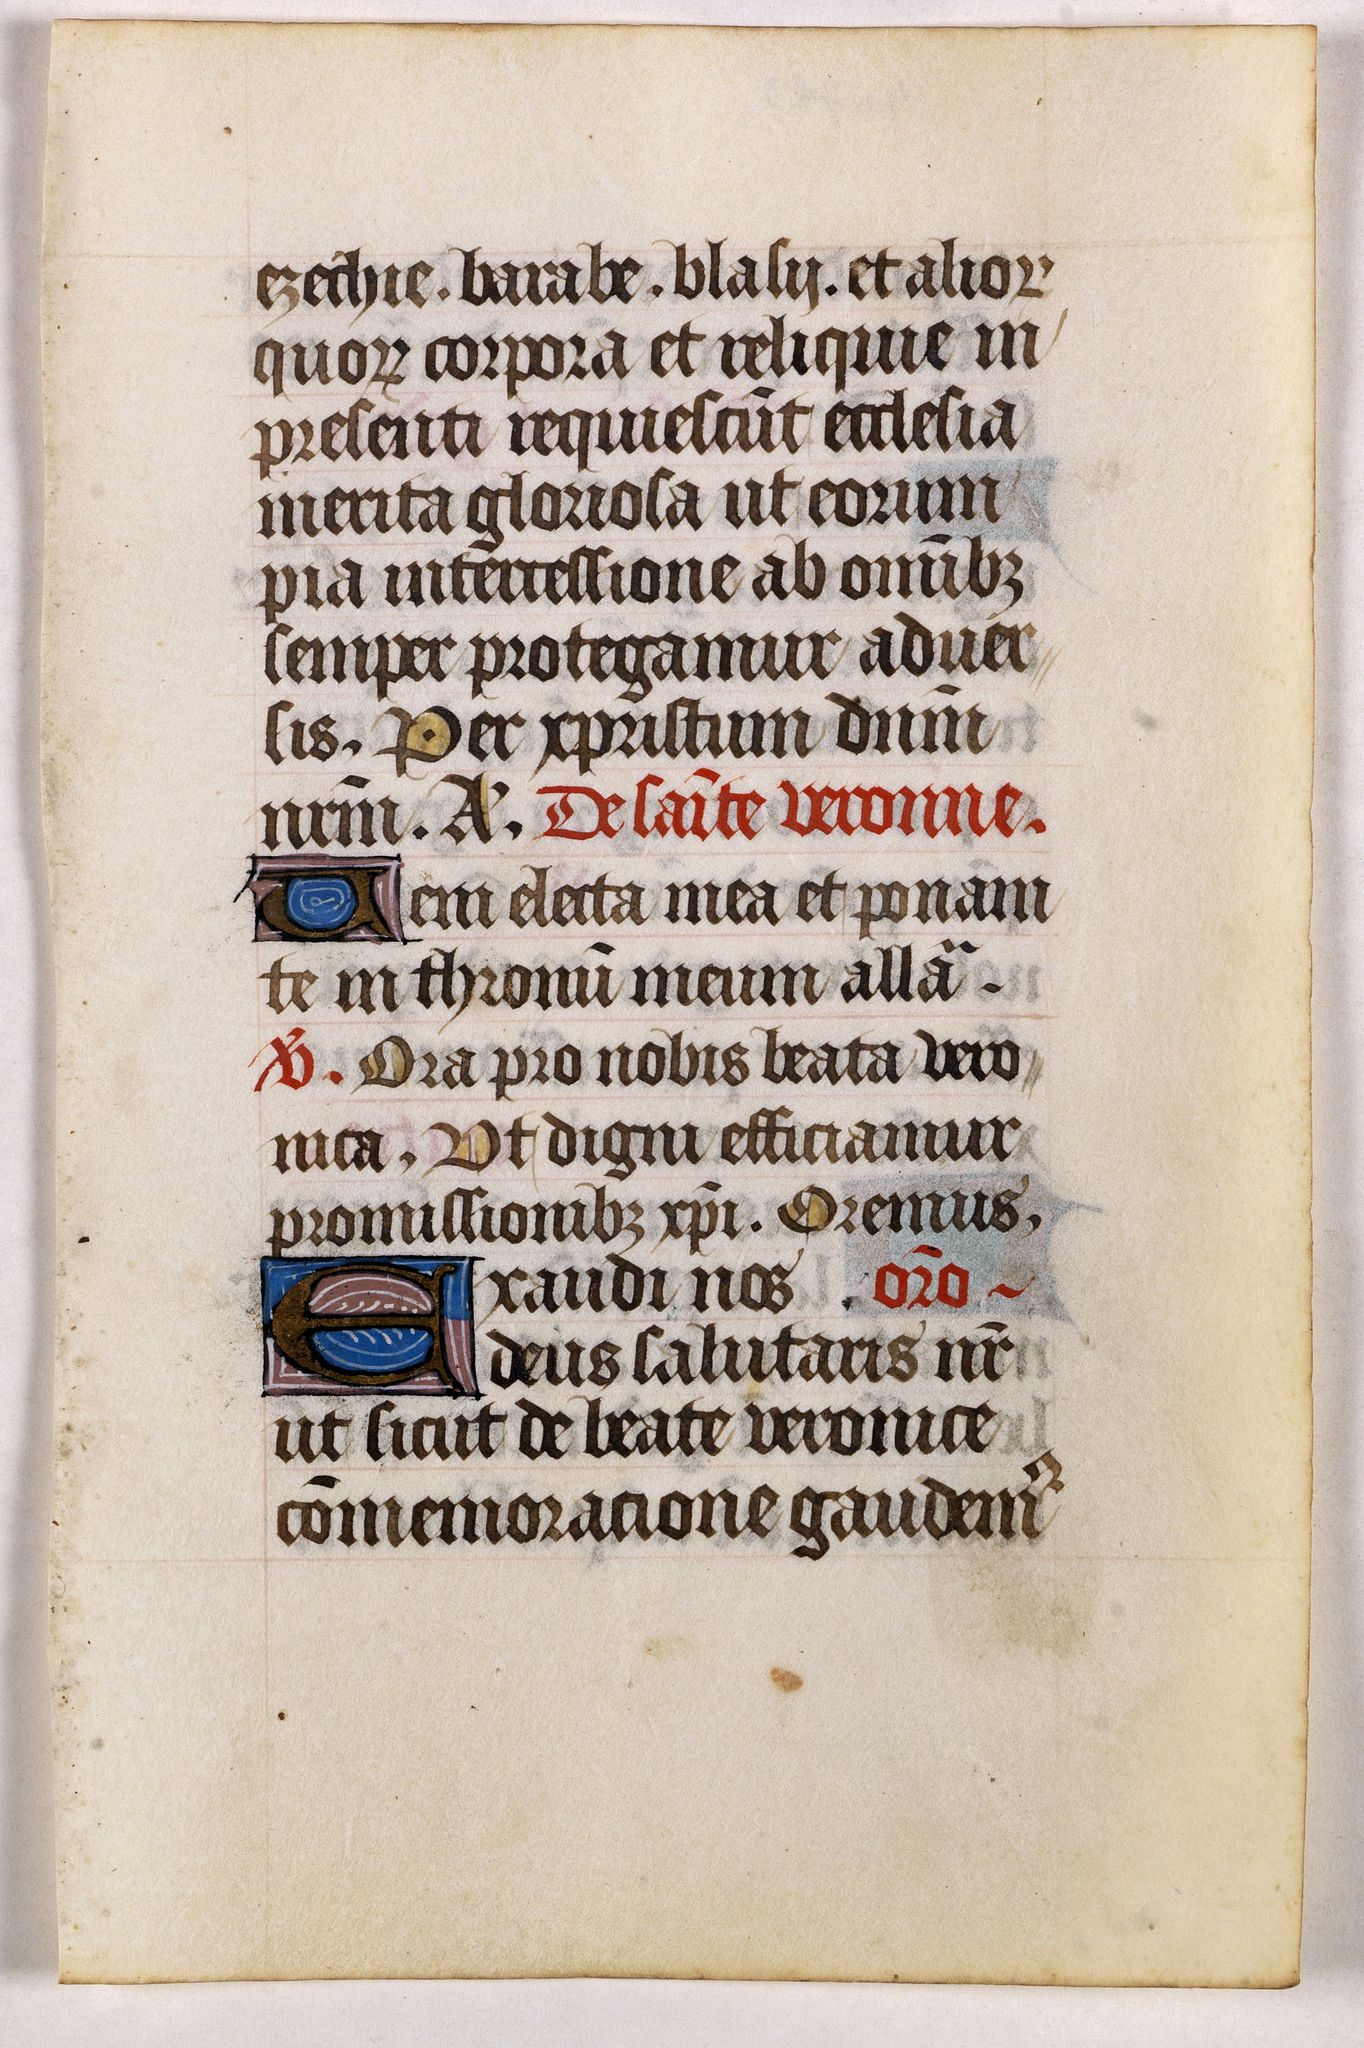 ezechie. barabe. blasij. et alioꝝ
quoꝝ corpora et reliquie in
presenti requiescūt ecclesia
merita gloriosa ut eorum
pia intērcessione ab om̄ibꝫ
semper protegamur aduer
sis. Per xpristum dn̄m
nr̄m. A. De saīte veronne.
Ueni electa mea et ponam
te in thronū meum alla.
℣. Ora pro nobis beata vero
nica. Ut digni efficiamur
promissionibꝫ xp̄i. Oremus.
Exaudi nos or̄o
deus salutaris nr̄
ut sicut de beate veronice
cōmemoracione gaudemꝰ